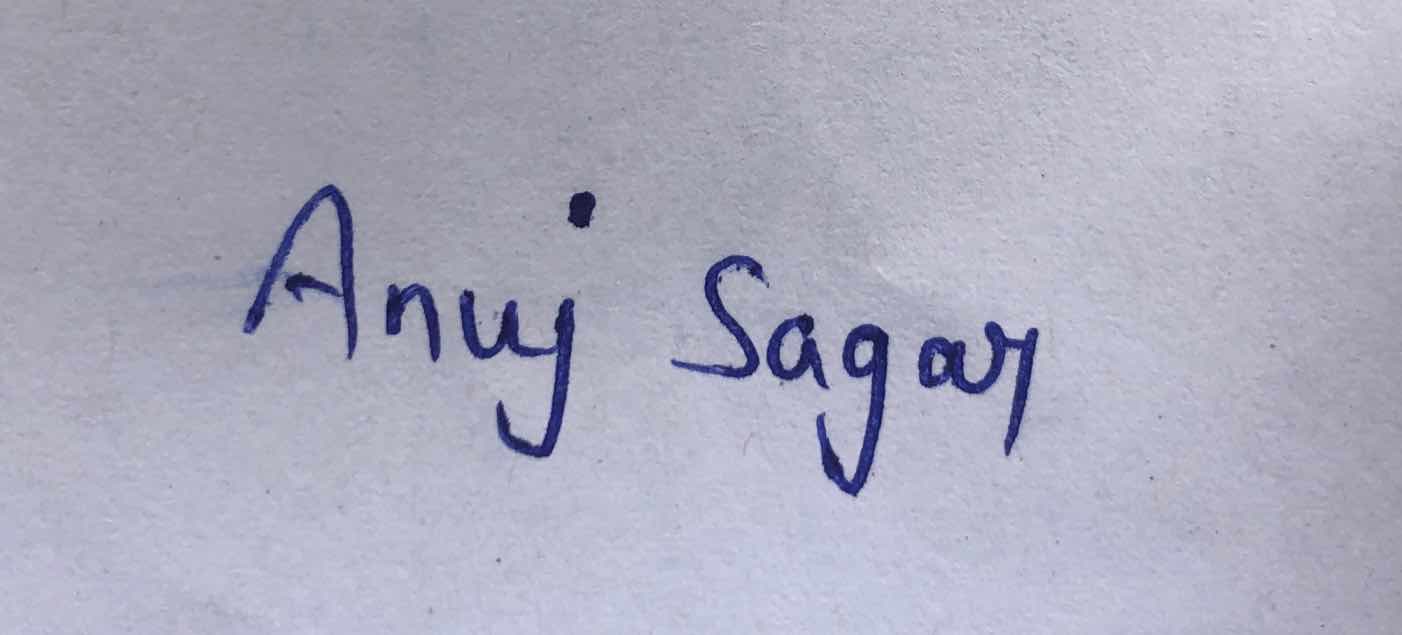 Anuj Sagar